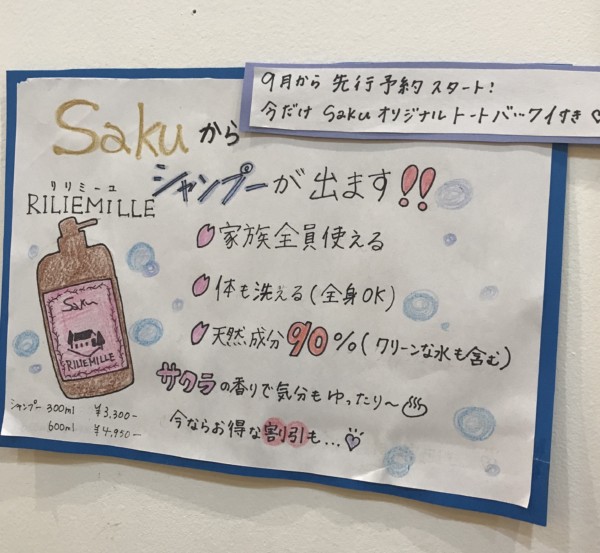 9月から 先行予約 スタート!
今だけ Saku オリジナル トートバック付き♡
Sakuから
シャンプーが出ます!!
リリミーユ
RILIEMILLE
家族全員使える
体も洗える(全身OK)
天然成分90%(クリーンな水も含む)
サクラの香りで気分もゆったり〜♨
今ならお得な割引も...♡
Saku
RILIEMILLE
シャンプー 300ml ¥3,300-
600ml ¥4,950-